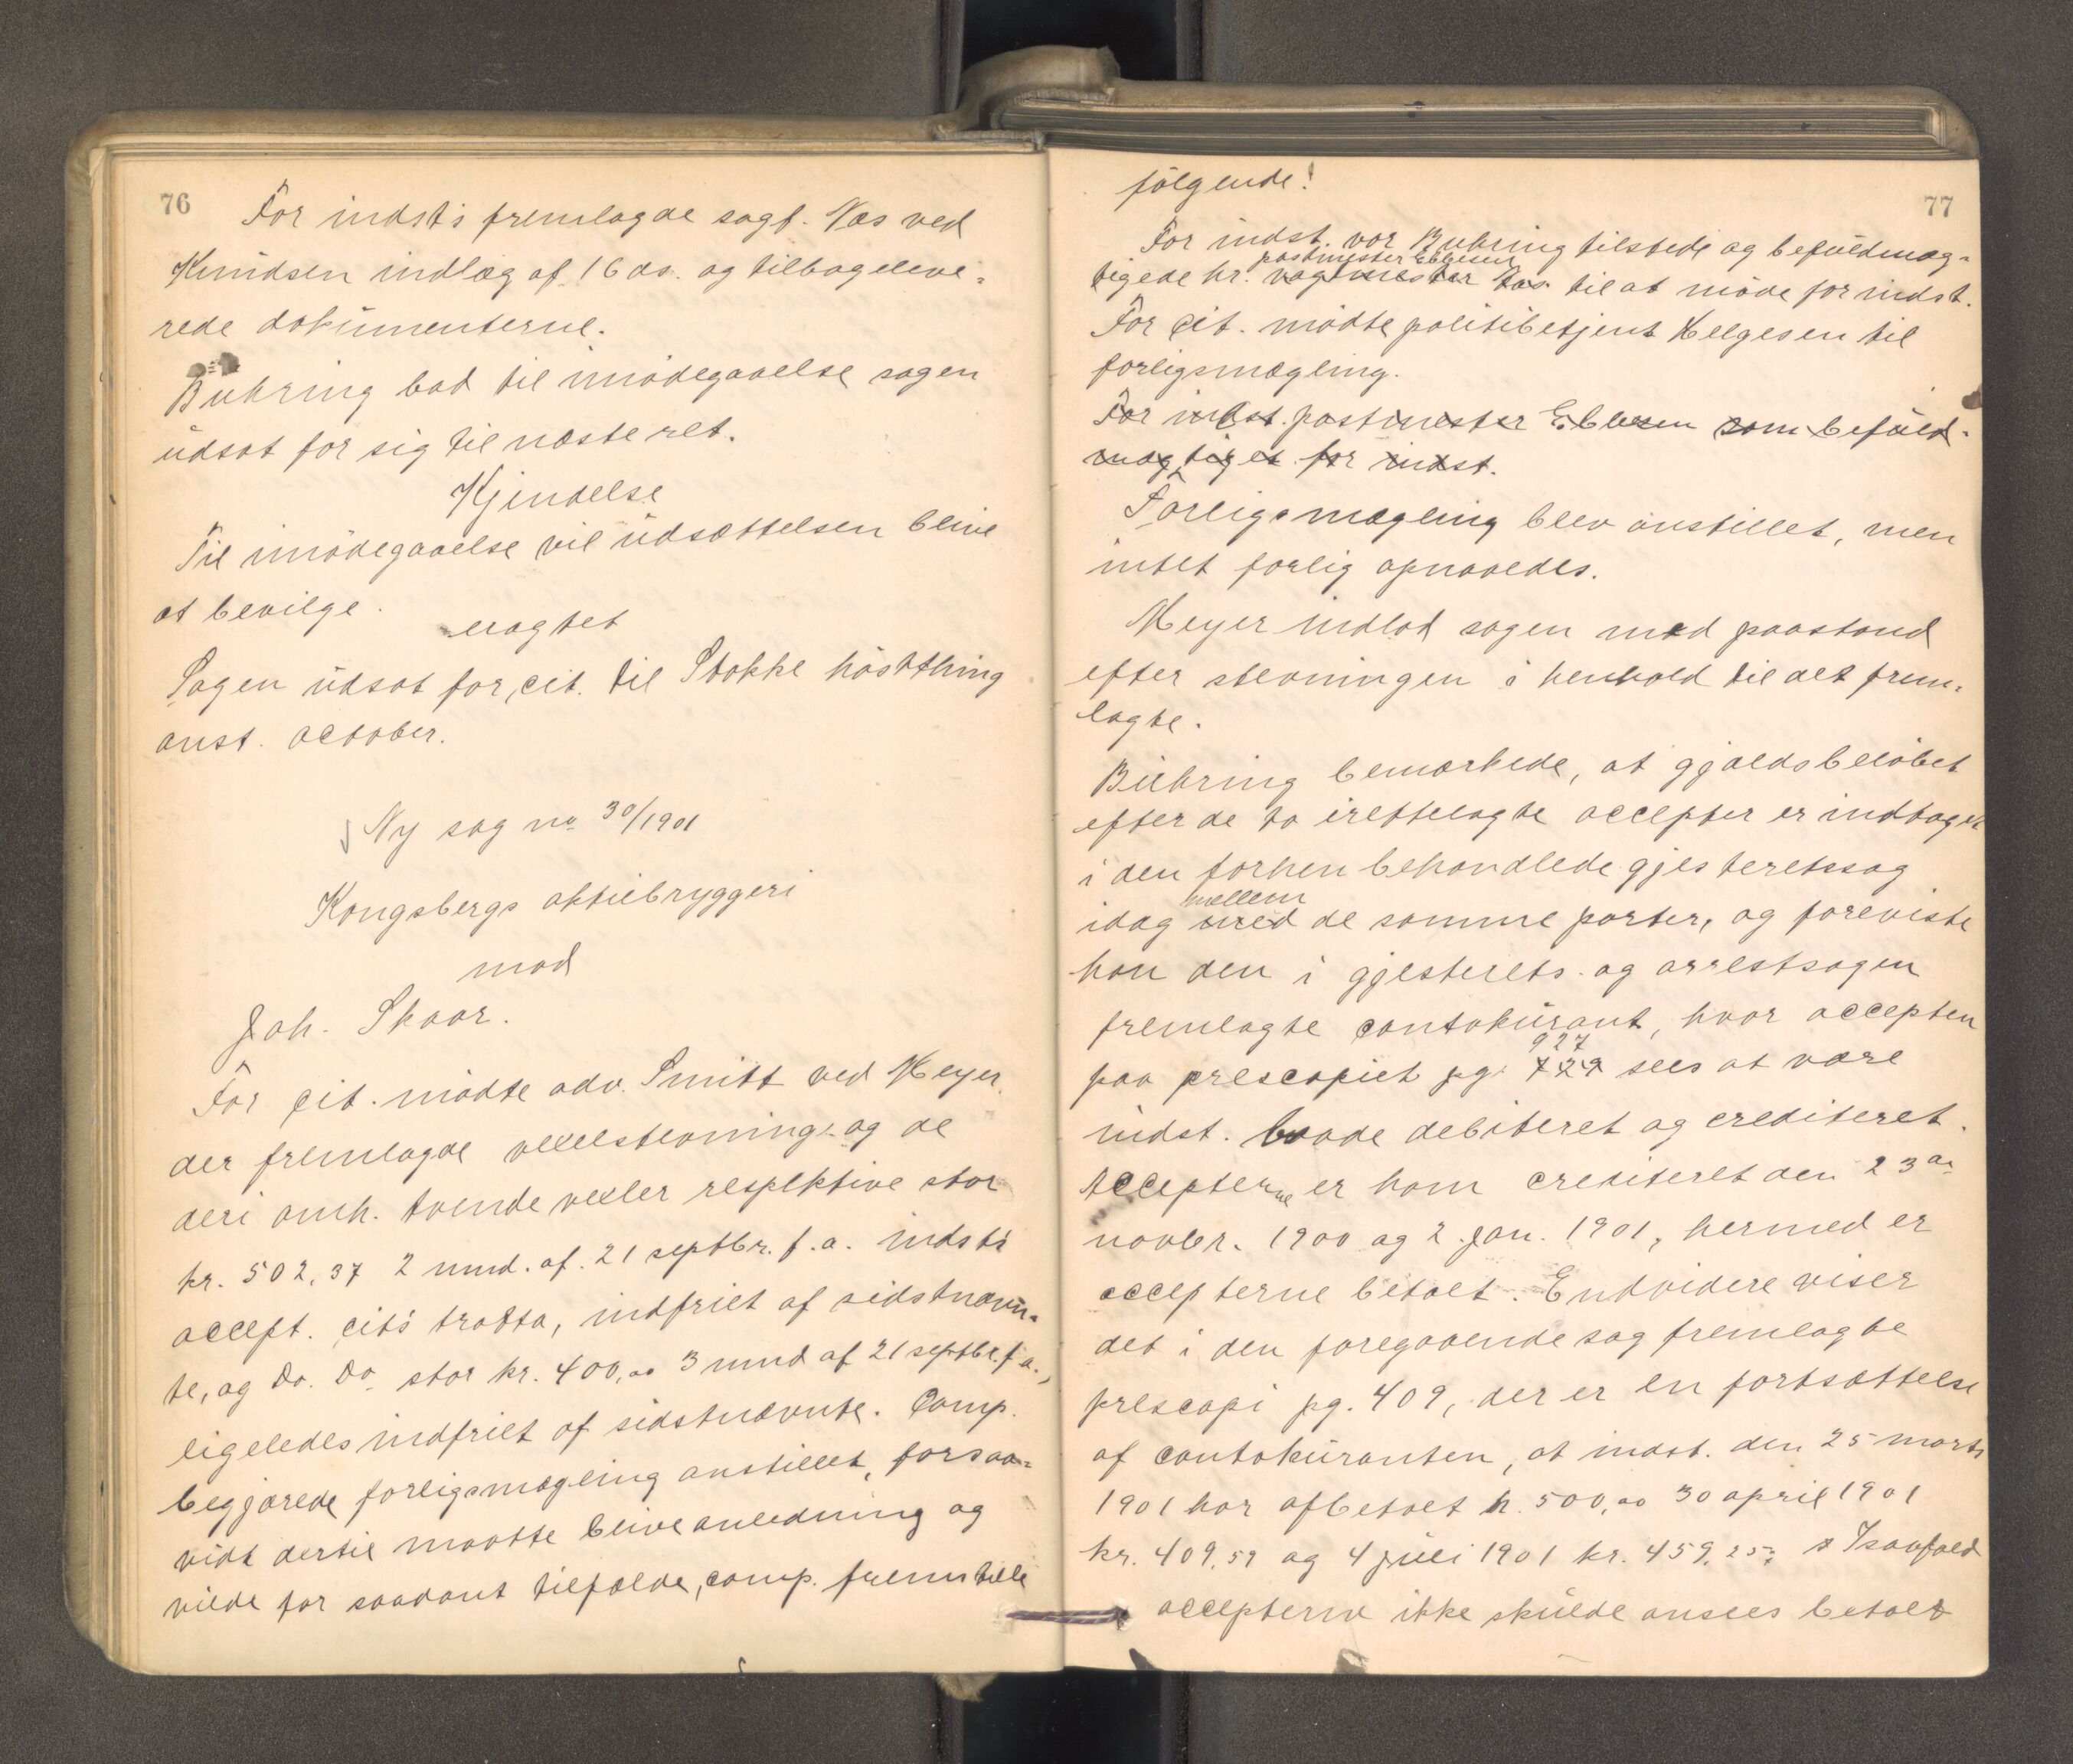 76
For indst's fremlagde sagf. Næs ved
Knudsen indlæg af 16 ds. og tilbageleve-
rede dokumenterne.
Buhring bad til imødegaaelse sagen
udsat for sig til næste ret.
Kjendelse
Til imødegaaelse vil udsættelsen blive
at bevilge.
eragtet
Sagen udsat for cit. til Stokke høstthing
anst. october.
Ny sag no 30/1901
Kongsbergs aktiebryggeri
mod
Joh. Skaar.
For cit. mødte adv. Smitt ved Meyer
der fremlagde vexelstevning og de
deri omh. tvende vexler respektive stor
kr. 502,37 2 mnd. af. 21 septbr. f.a. indst's
accept. cit's tratta, indfriet af sidstnævn-
te, og Do. Do stor kr. 400,00 3 mnd af 21 septbr. f.a.,
ligeledes indfriet af sidstnævnte. Comp.
begjærede forligsmægling anstillet, forsaa-
vidt dertil maatte blive anledning og
vilde for saadant tilfælde, comp. fremstille
77
følgende!
For indst. var Buhring tilstede og befuldmæg-
postmester Ebbesen
tigede hr. vagtmester Aas til at møde for indst.
For cit. mødte politibetjent Helgesen til
forligsmægling.
For indst. postmester Ebbesen som befuld-
mægtiget for indst.
Forligsmægling blev anstillet, men
intet forlig opnaaedes.
Meyer indlod sagen med paastand
efter stevningen i henhold til det frem-
lagte.
Buhring bemærkede, at gjældsbeløbet
efter de to irettelagte accepter er indtaget
i den forhen behandlede gjesteretssag
mellem
idag med de samme parter, og foreviste
han den i gjesterets- og arrestsagen
fremlagte contokurant, hvor accepten
927
paa prescopiet pg. 729 sees at være
indst. baade debiteret og crediteret.
Accepterne er ham crediteret den 23de
novbr. 1900 og 2. jan. 1901, hermed er
accepterne betalt. Endvidere viser
det i den foregaaende sag fremlagte
prescopi pg. 409, der er en fortsættelse
af contokuranten, at indst. den 25 marts
1901 har afbetalt kr. 500,00 30 april 1901
kr. 409,59 og 4 juli 1901 kr. 459,25; Isaafald
accepterne ikke skulde ansees betalt